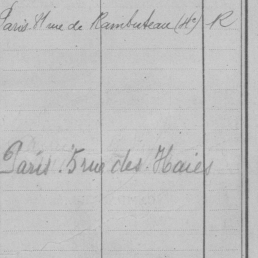 Paris. 11 rue de Rambuteau (4e) - R
Paris. 5 rue des Haies